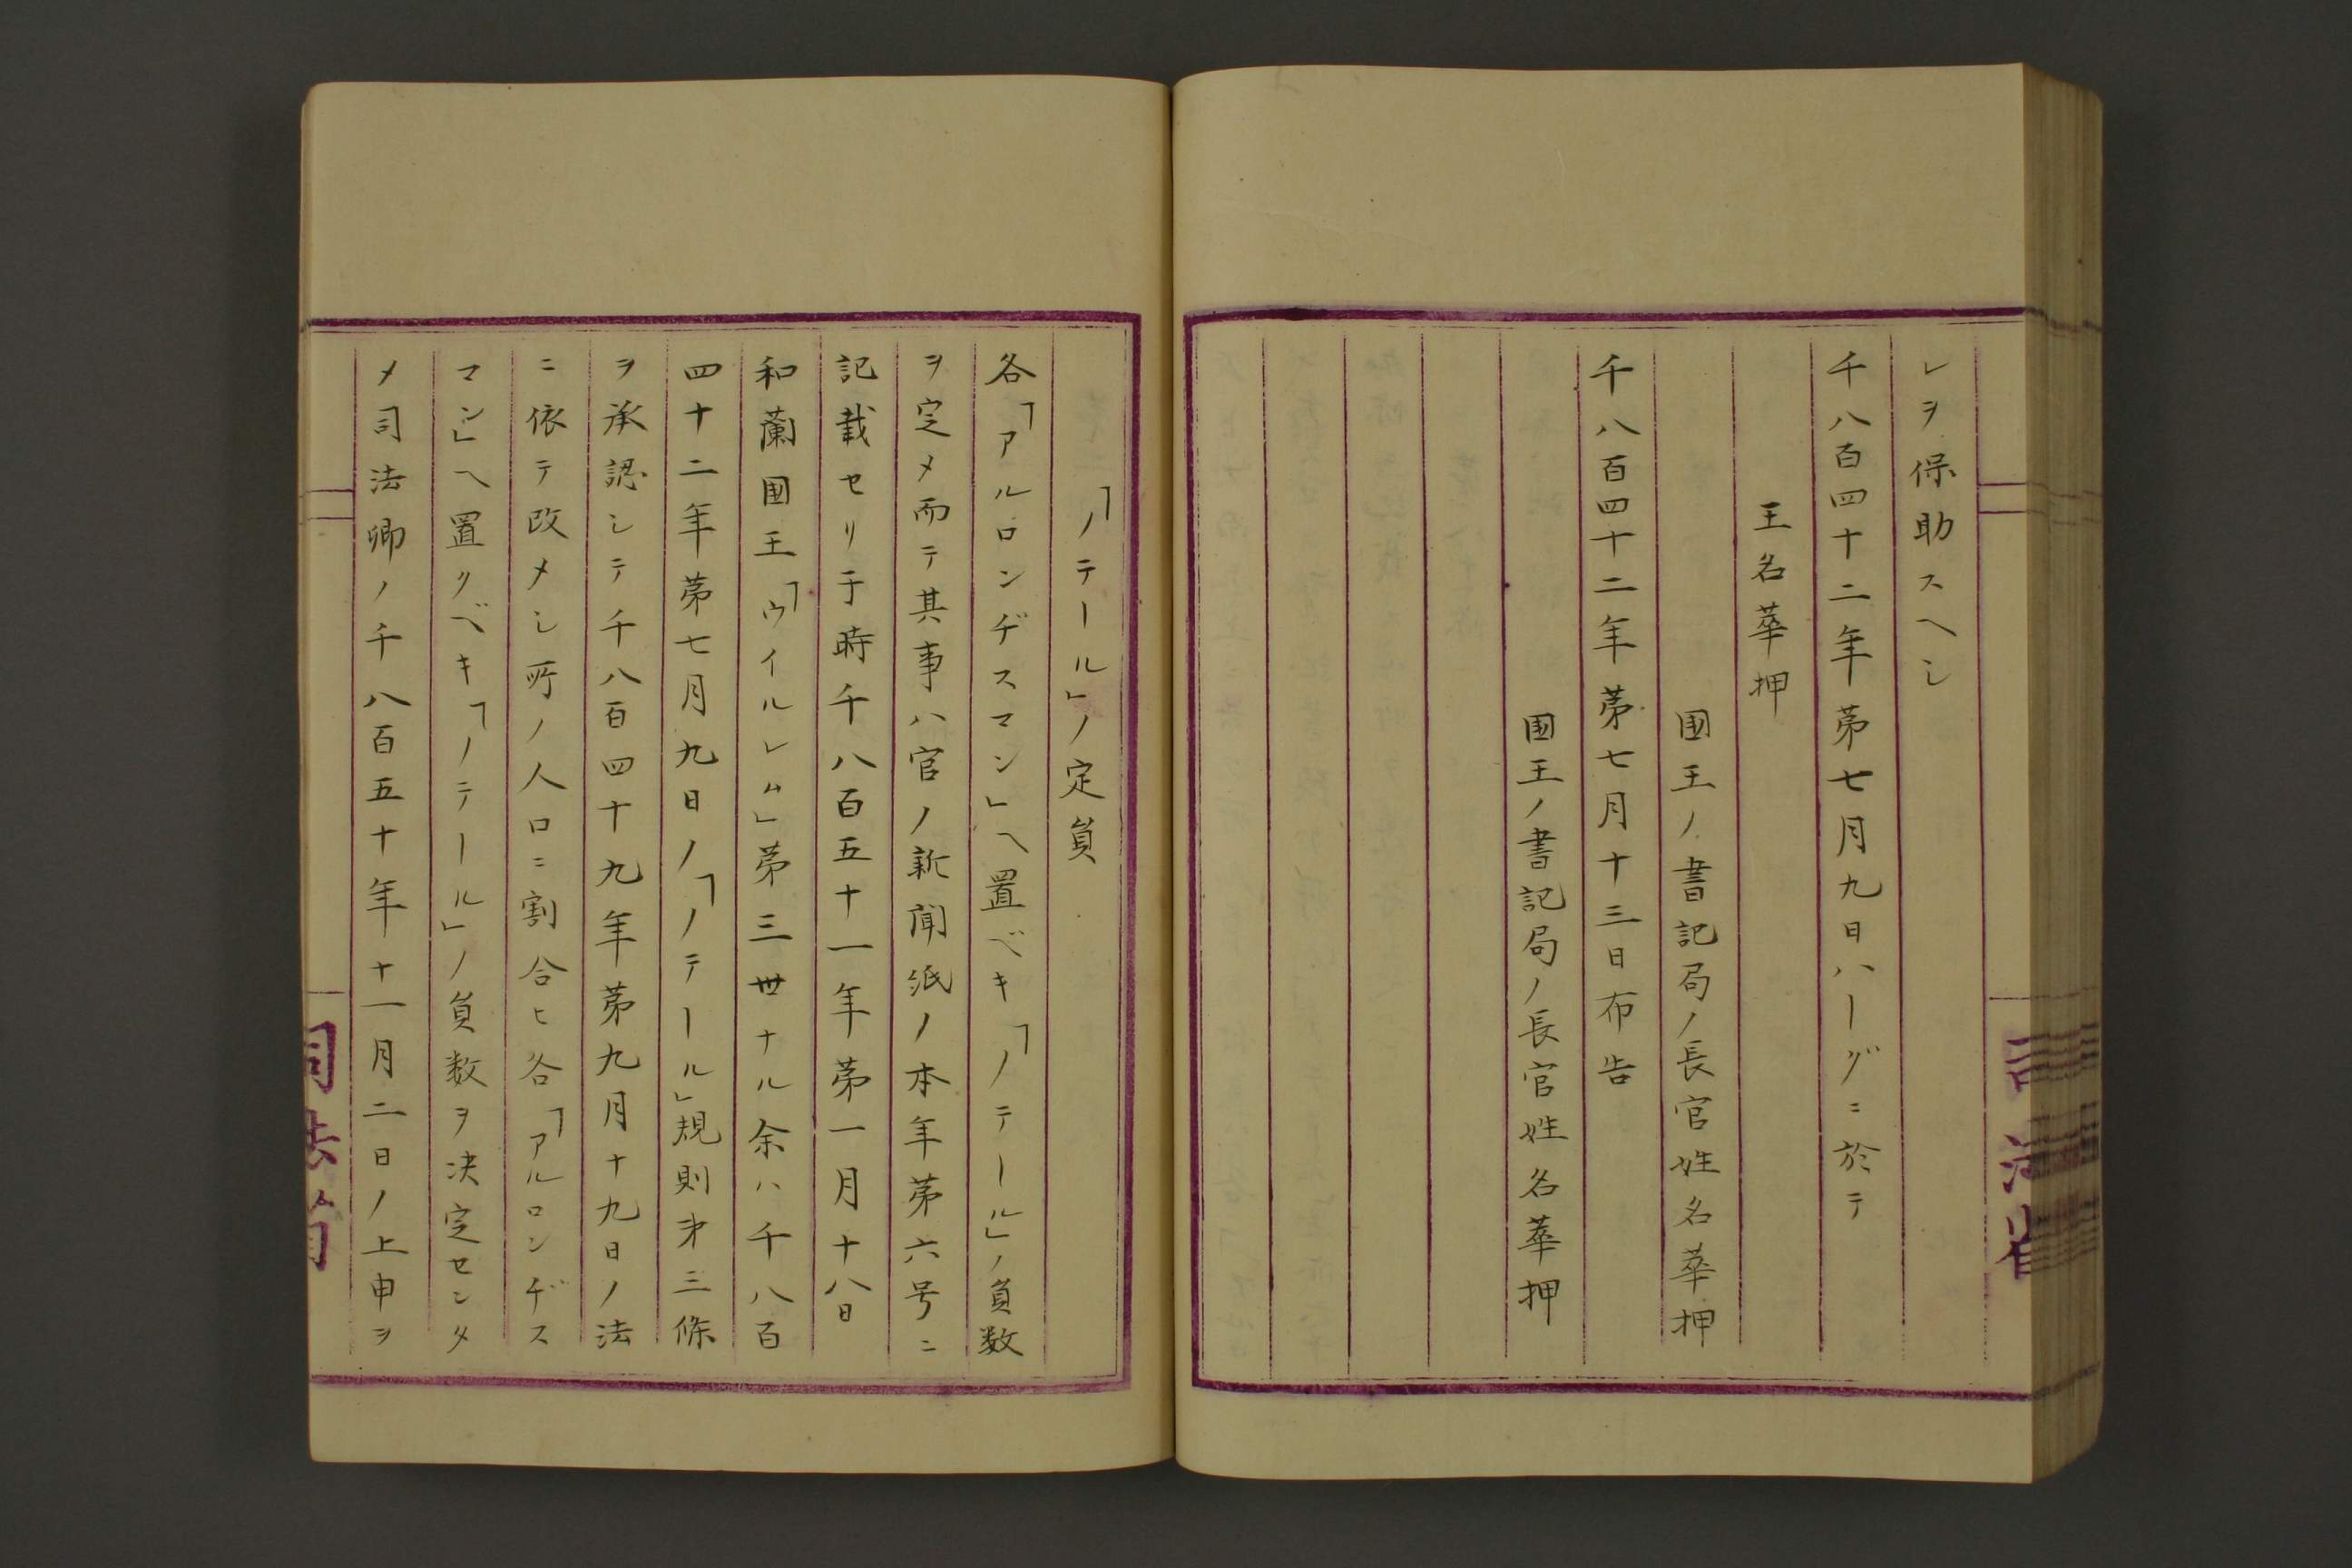 レヲ保助スヘシ
千八百四十二年第七月九日ハーグニ於テ
王名華押
國王ノ書記局ノ長官姓名華押
千八百四十二年第七月十三日布告
國王ノ書記局ノ長官姓名華押
「ノテール」ノ定員
各「アルロンヂスマン」ヘ置ベキ「ノテール」ノ員数
ヲ定メ而テ其事ハ官ノ新聞紙ノ本年第六号ニ
記載セリ于時千八百五十一年第一月十八日
和蘭国王「ウイルレム」第三世ナル余ハ千八百
四十二年第七月九日ノ「ノテール」規則才三條
ヲ承認シテ千八百四十九年第九月十九日ノ法
ニ依テ改メシ所ノ人口ニ割合ヒ各「アルロンヂス
マン」ヘ置クベキ「ノテール」ノ員数ヲ决定センタ
メ司法卿ノ千八百五十年十一月二日ノ上申ヲ
司法省